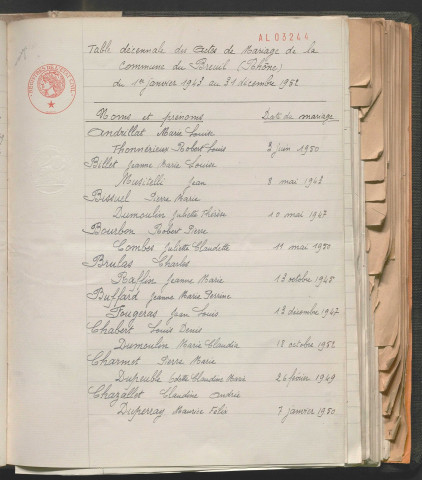 AL 03244
Table décennale des Actes de Mariage de la
Commune du Breuil (Rhône)
du 1er janvier 1943 au 31 décembre 1952
Noms et prénoms Date de mariage
Andrillat Marie Louise
Thonnérieux Robert Louis 3 juin 1950
Billet Jeanne Marie Louise
Musitelli Jean 8 mai 1948
Bissuel Pierre Marie
Dumoulin Juliette Thérèse 10 mai 1947
Bourbon Robert Pierre
Combes Juliette Claudette 11 mai 1950
Brulas Charles
Raffin Jeanne Marie 13 octobre 1945
Buffard Jeanne Marie Perrine
Fougeras Jean Louis 13 décembre 1947
Chabert Louis Denis
Dumoulin Marie Claudia 18 octobre 1952
Charmet Pierre Marie
Dupeuble Odette Claudine Marie 26 février 1949
Chazallet Claudine Andrée
Duperray Maurice Felix 7 janvier 1950